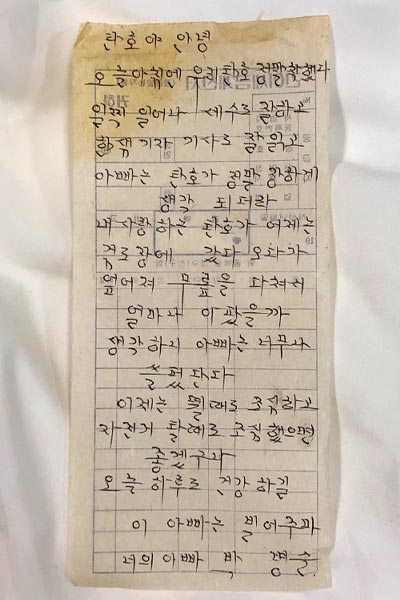 탄호야 안녕
오늘아침에 우리탄호 정말착했다
일찍 일어나 세수도 잘하고
학생기자 기사도 잘읽고
아빠는 탄호가 정말 장하게
생각 되더라
내사랑하는 탄호가 어제는
목도장에 갔다 오다가
엎어져 무릎을 다쳐서
얼마나 아팠을가
생각하니 아빠는 너무나
쓸펐단다
이제는 뜰때도 조심하고
자전거 탈때도 조심했으면
좋겠구나
오늘 하루도 건강 하길
이 아빠는 빌어주마
너의아빠 박 명줄